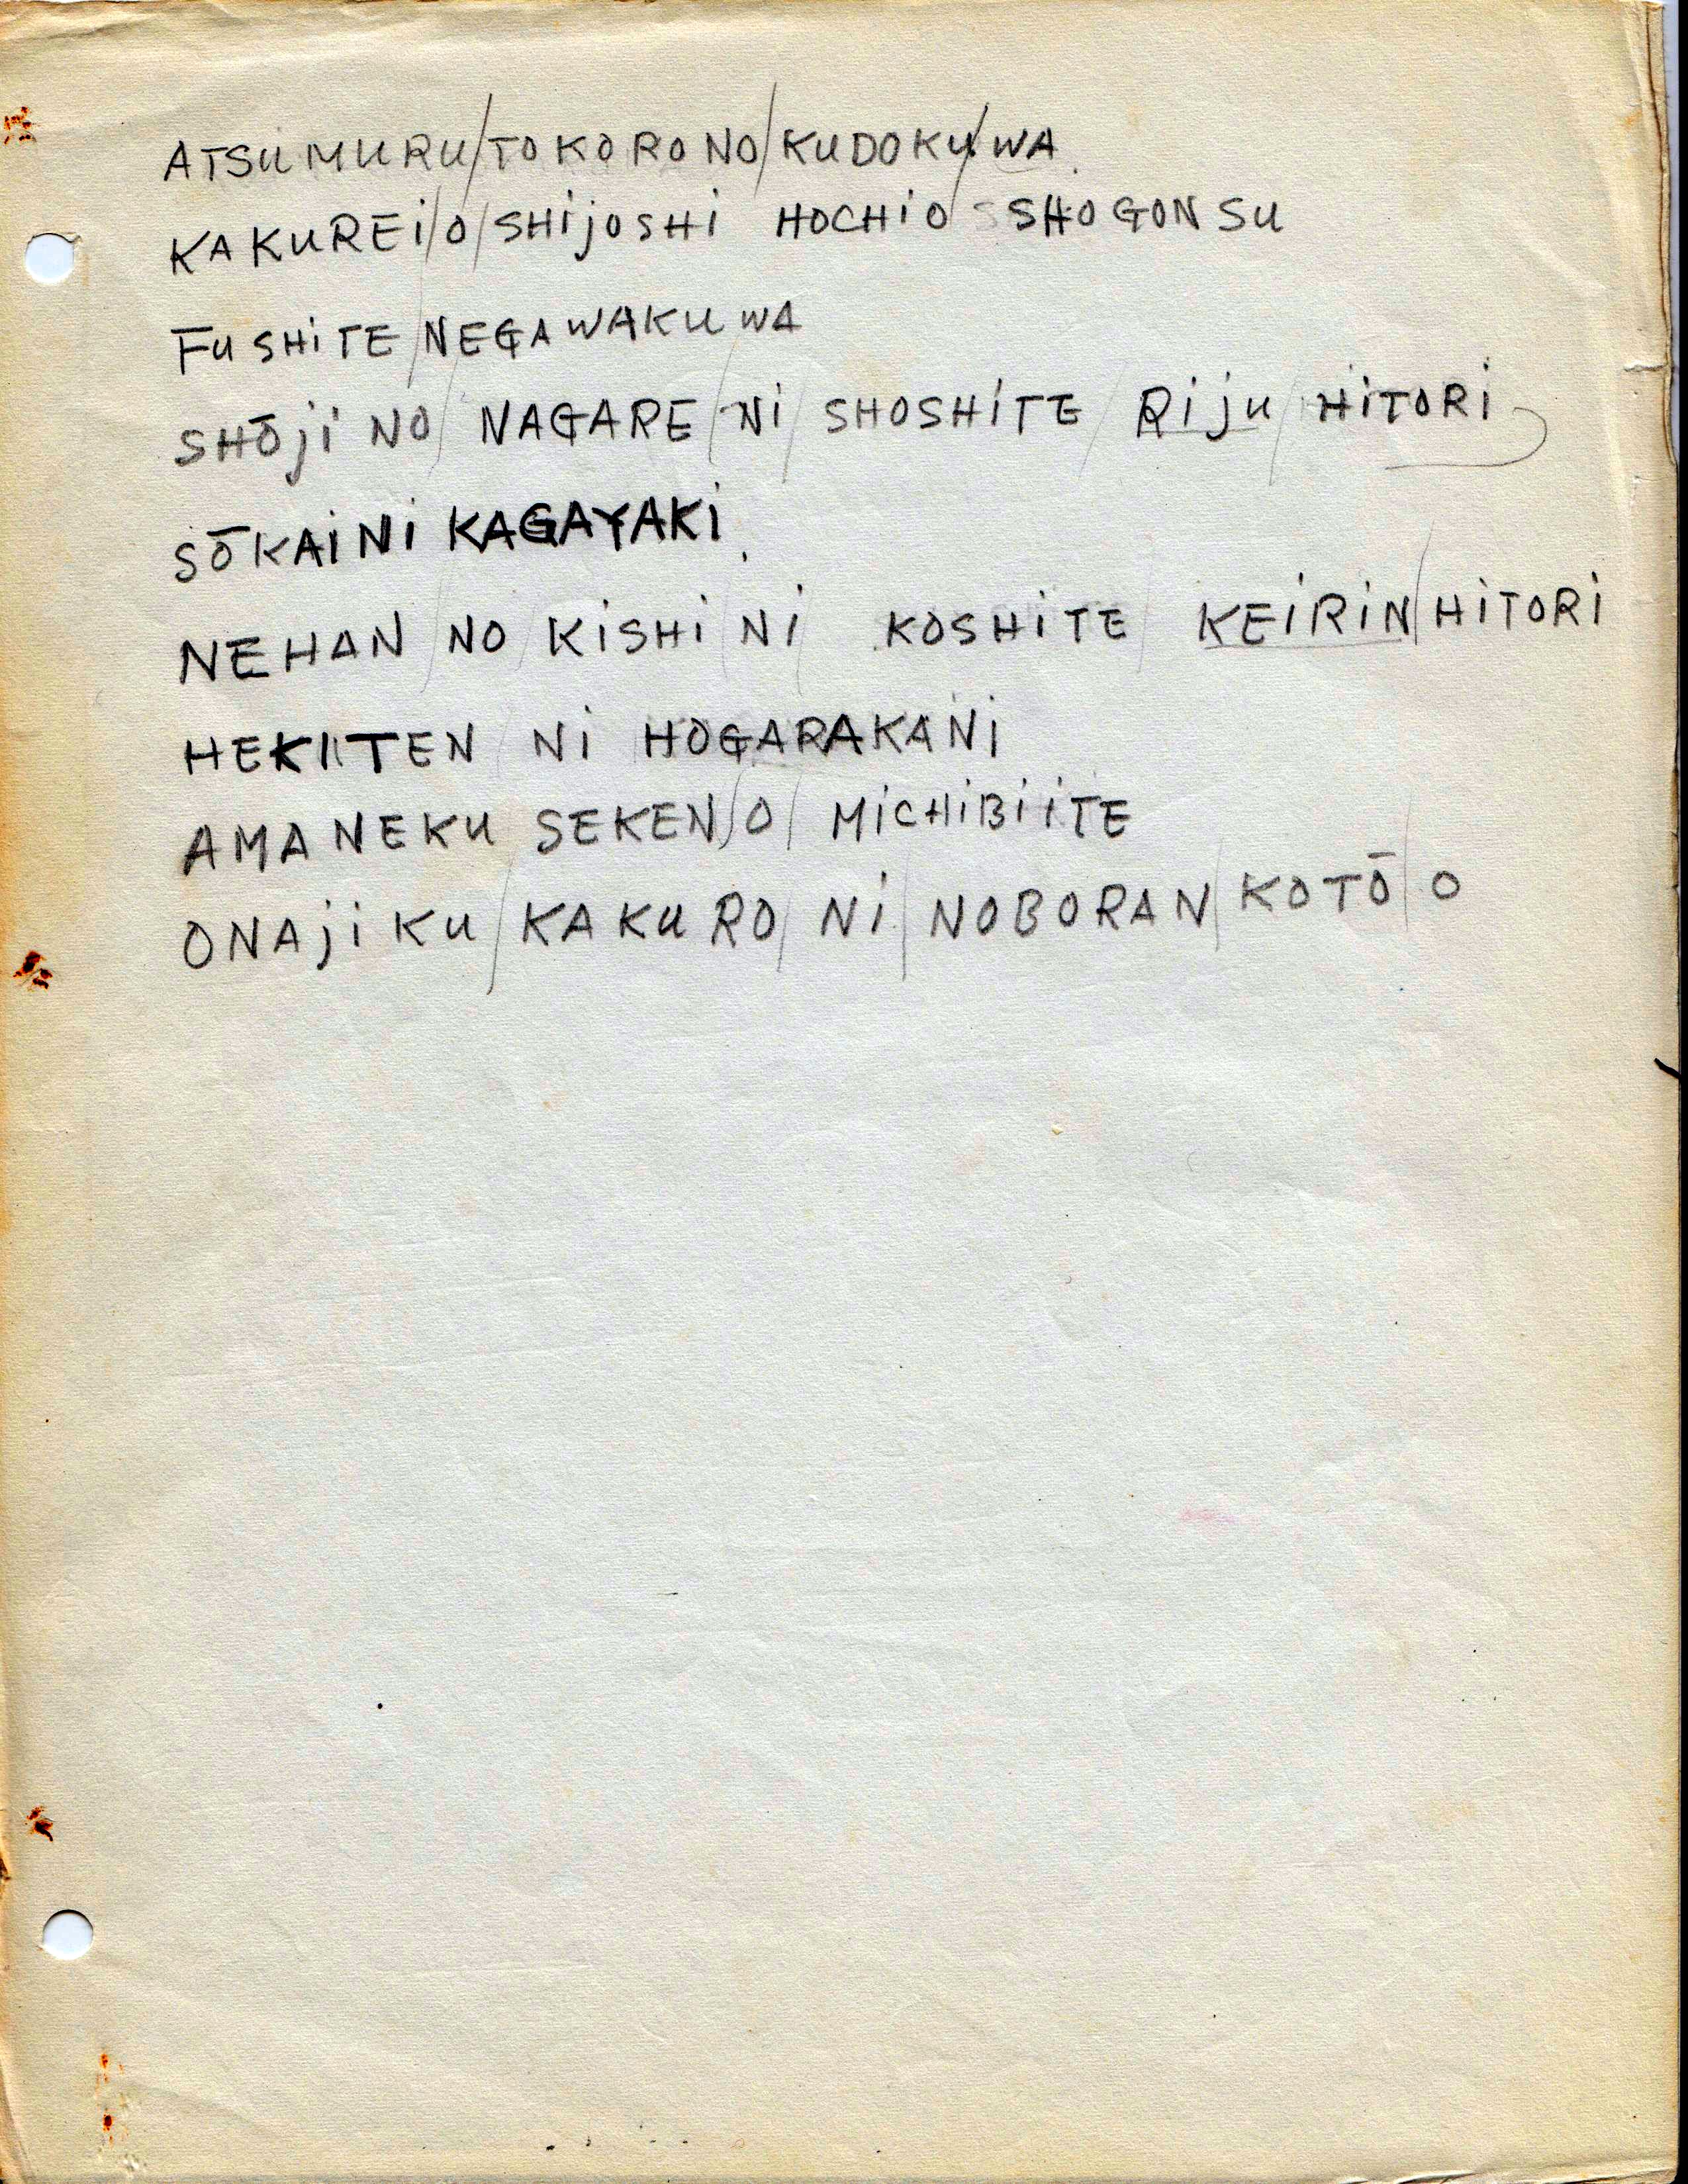 ATSUMURU/TOKORO NO/KUDOKU/WA
KAKUREI/O/SHIJOSHI HOCHIO SHOGONSU
FUSHITE/NEGAWAKUWA
SHŌJI NO/NAGARE/NI/SHOSHITE/RIJU/HITORI
SŌKAI NI KAGAYAKI
NEHAN/NO/KISHI/NI/KOSHITE/KEIRIN/HITORI
HEKITEN/NI HOGARAKANI
AMANEKU SEKEN/O/MICHIBIITE
ONAJIKU/KAKURO/NI/NOBORAN/KOTŌ/O